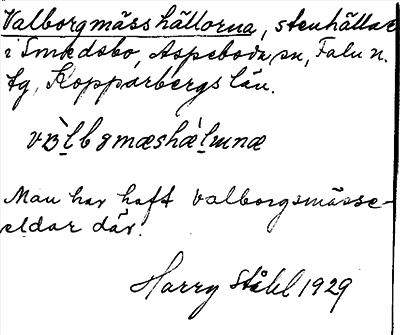 Valborgmässhällorna, stenhällar
i Smedsbo, Aspeboda sn, Falu n.
tg, Kopparbergs län.
Man har haft valborgsmässe-
eldar där.
Harry Ståhl 1929